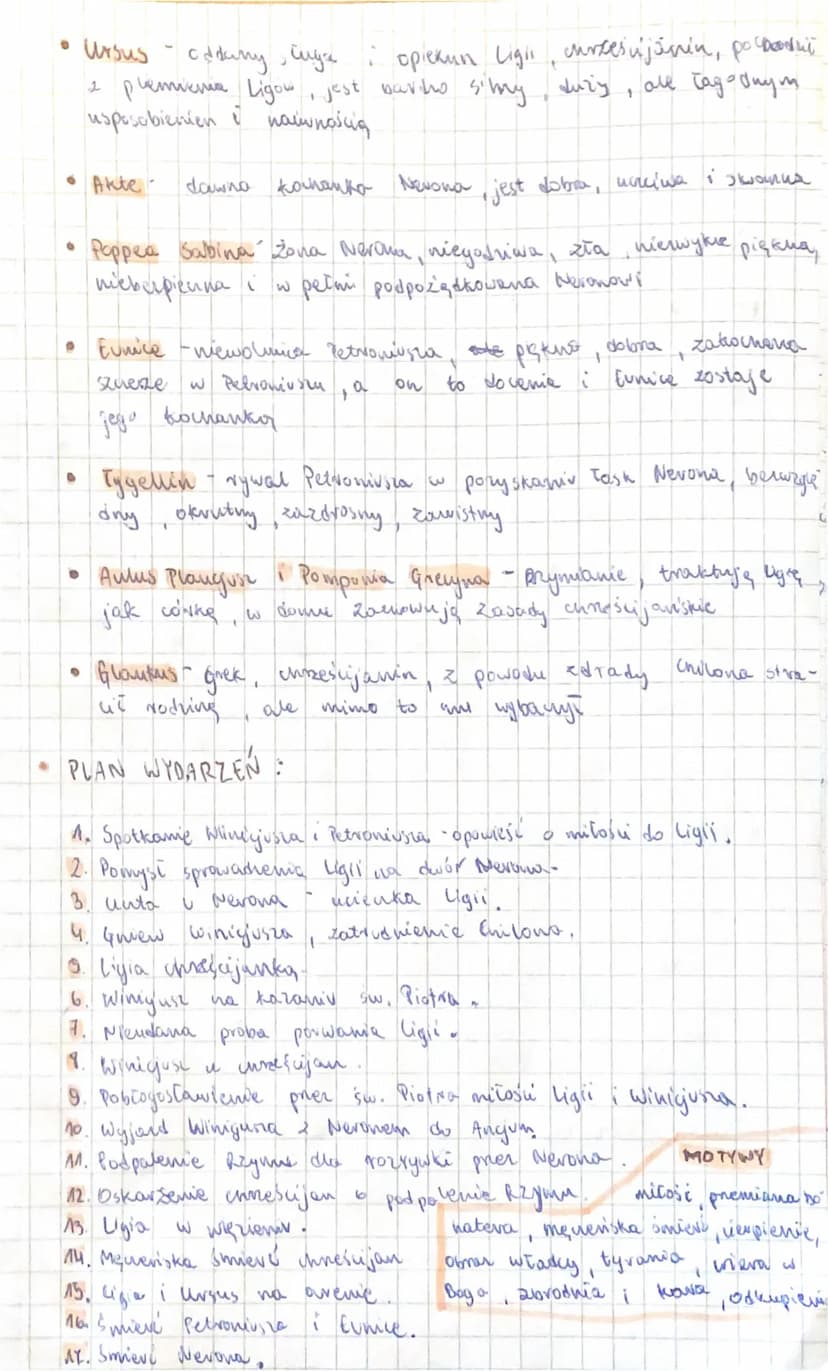 • Ursus - oddany sługa i opiekun Ligii, chrześcijanin, pochodzi
z plemienia Ligów, jest bardzo silny, duży, ale łagodnym
usposobieniem i naiwnością
• Akte - dawna kochanka Nerona, jest dobra, uczciwa i skromna
• Poppea Sabina - żona Nerona, niegodziwa, zła, niezwykle piękna,
niebezpieczna i w pełni podpożądkowana Neronowi
• Eunice - niewolnica Petroniusza, piękna, dobra, zakochana
szczerze w Petroniuszu, a on to docenia i Eunice zostaje
jego kochanką
• Tygellin - rywal Petroniusza w pozyskaniu łask Nerona, bezwzglę
dny, okrutny, zazdrosny, zawistny
• Aulus Plaucjusz i Pomponia Grecyna - Rzymianie, traktują Ligię,
jak córkę, w domu zachowują zasady chrześcijańskie
• Glaukus - grek, chrześcijanin, z powodu zdrady Chilona stra-
cił rodzinę, ale mimo to mu wybaczył
• PLAN WYDARZEŃ:
1. Spotkanie Winicjusza i Petroniusza - opowieść o miłości do Ligii.
2. Pomysł sprowadzenia Ligii na dwór Nerona.
3. Uczta u Nerona - ucieczka Ligii.
4. Gniew Winicjusza, zatrudnienie Chilona.
5. Ligia chrześcijanką.
6. Winicjusz na kazaniu św. Piotra.
7. Nieudana próba porwania Ligii.
8. Winicjusz u chrześcijan.
9. Pobłogosławienie przez św. Piotra miłości Ligii i Winicjusza.
10. Wyjazd Winicjusza z Neronem do Ancjum.
11. Podpalenie Rzymu dla rozrywki przez Nerona.
MOTYWY
12. Oskarżenie chrześcijan o podpalenie Rzymu.
miłość, przemiana bo
13. Ligia w więzieniu.
hatera, męczeńska śmierć, cierpienie,
14. Męczeńska śmierć chrześcijan
obraz władcy, tyrania, wiara w
15. Ligia i Ursus na arenie.
Boga, zbrodnia i kara, odkupienie
16. Śmierć Petroniusza i Eunice.
17. Śmierć Nerona.